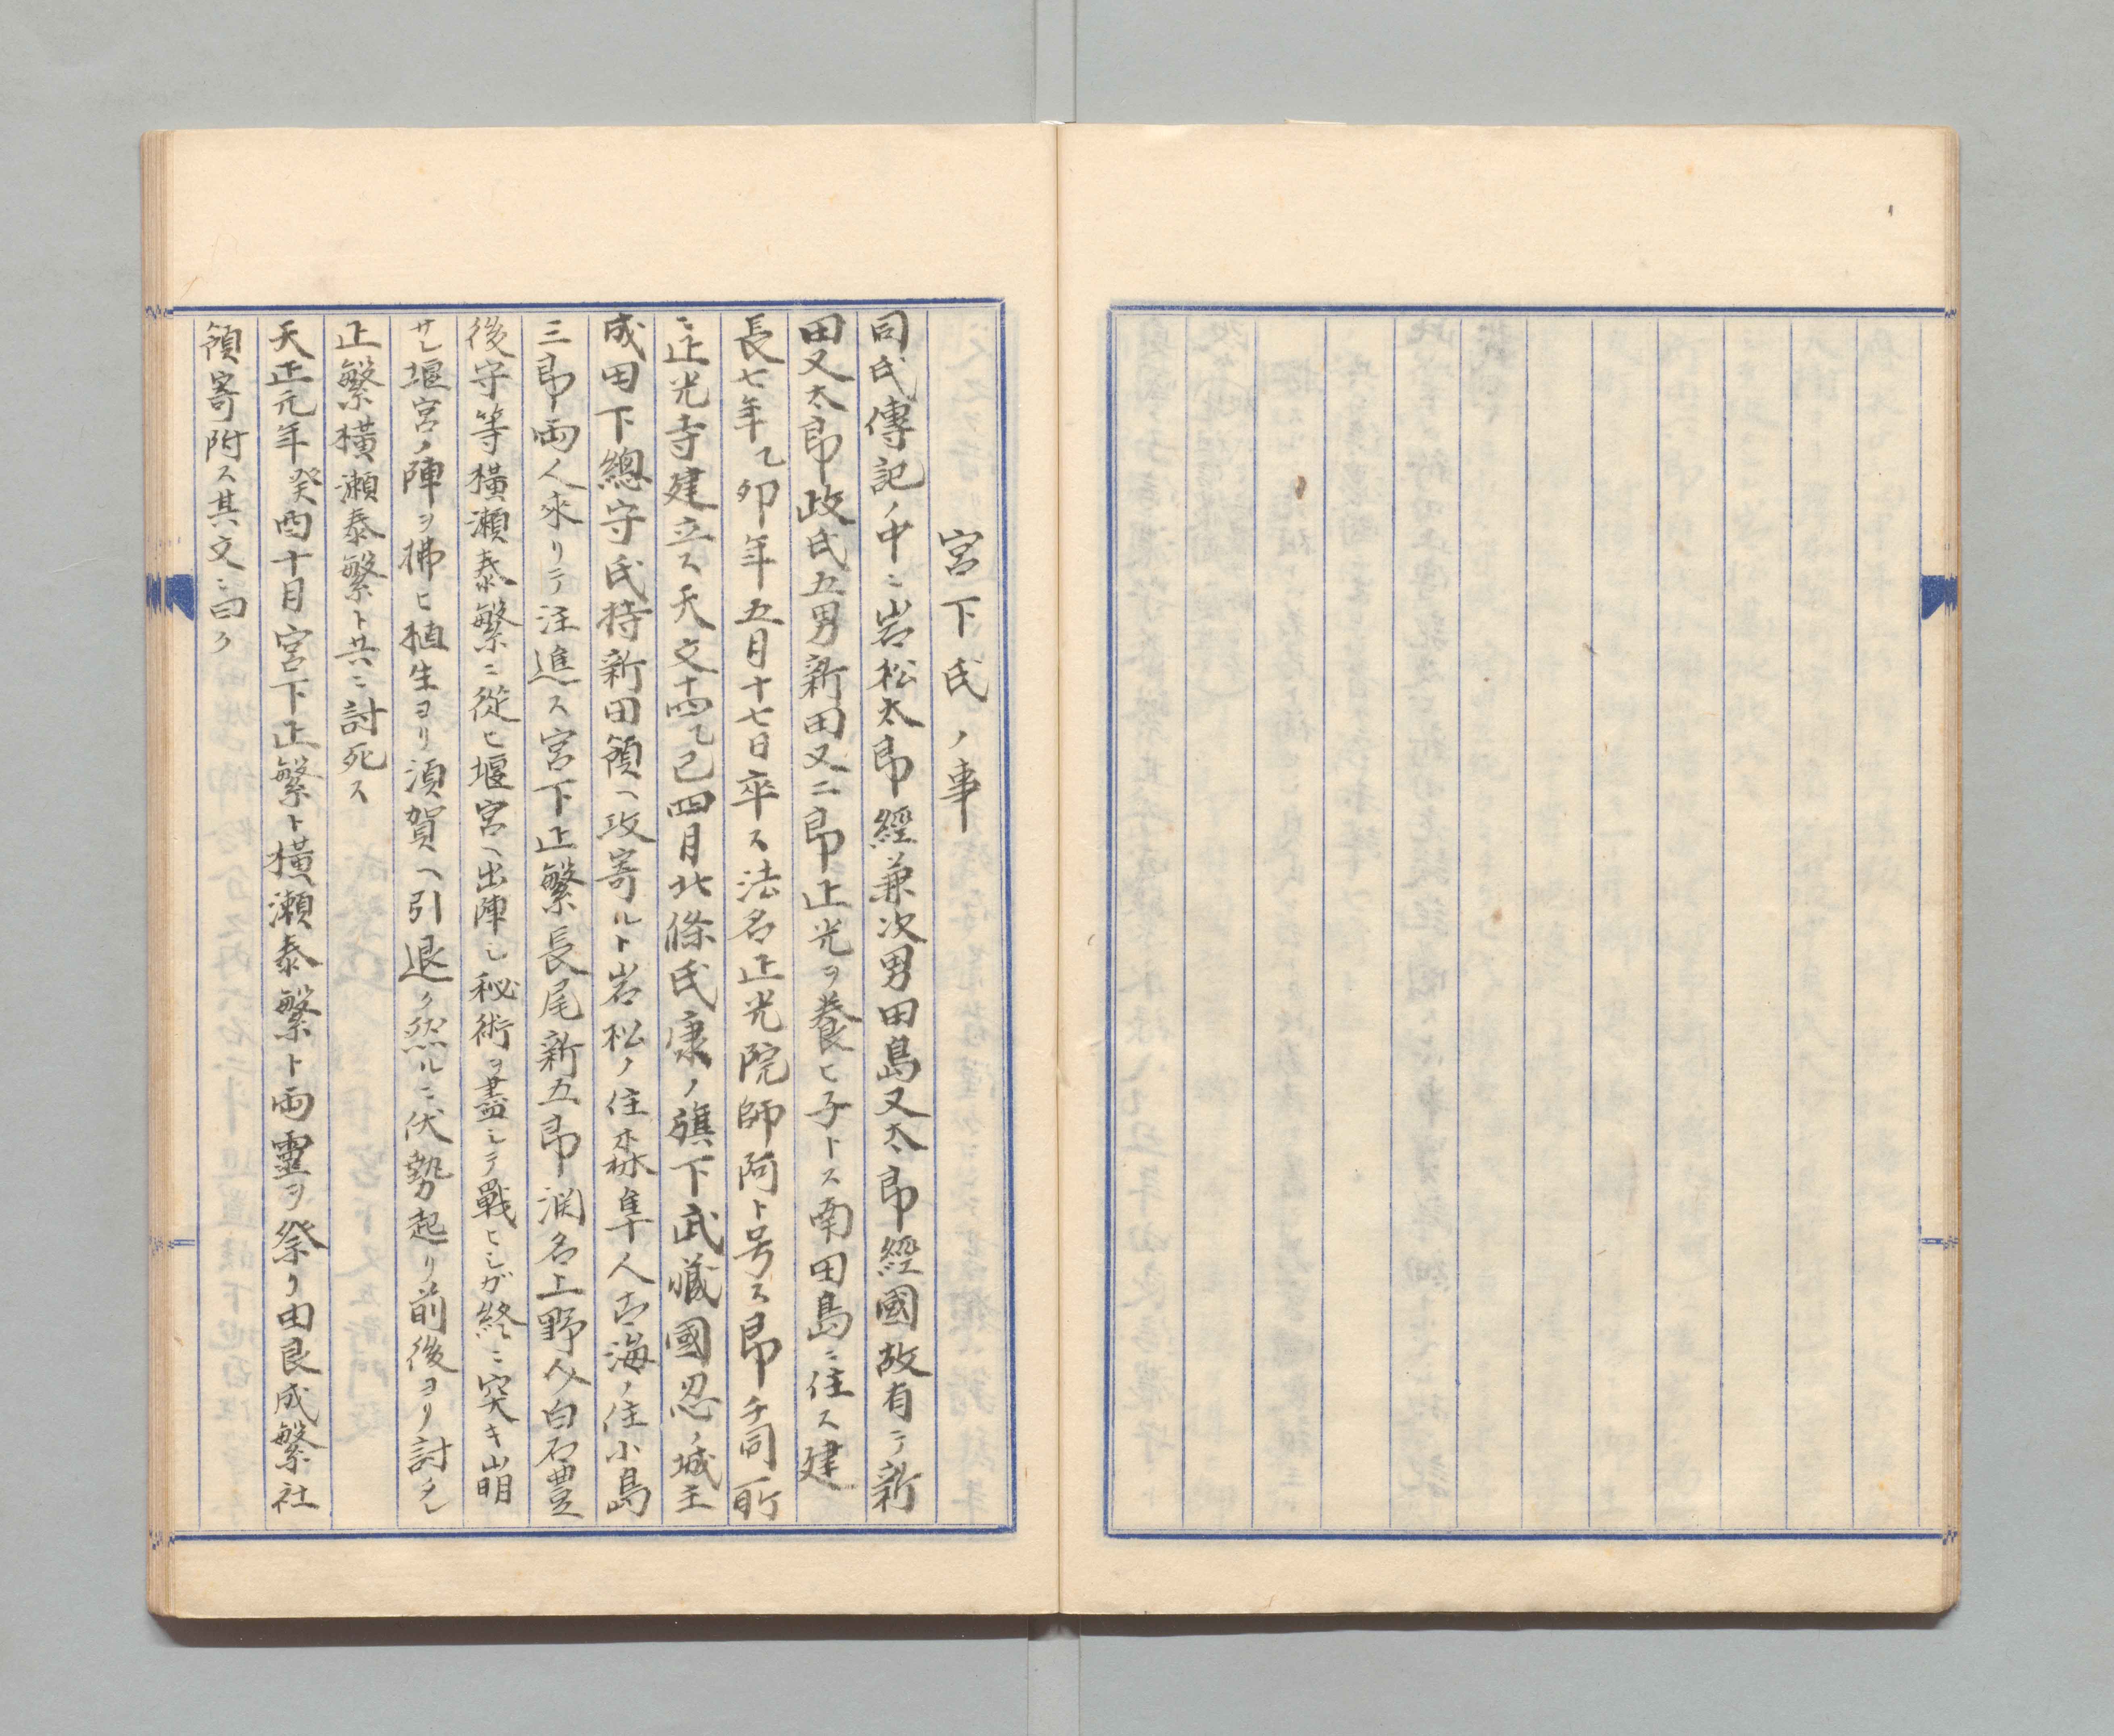 宮下氏ノ事
同氏傳記ノ中ニ岩松太郎經兼次男田島又太郎經國故有テ新
田又太郎政氏五男新田又二郎正光ヲ養ヒ子トス南田島ニ住ス建
長七年乙卯年五月十七日卒ス法名正光院師阿ト号ス即チ同所
ニ正光寺建立ス天文十四乙巳四月北條氏康ノ旗下武藏國忍ノ城主
成田下總守氏持新田領ヘ攻寄ルト岩松ノ住森隼人古海ノ住小島
三郎両人來リテ注進ス宮下正繁長尾新五郎渕名上野介白石豊
後守等横瀬泰繁ニ從ヒ堰宮ヘ出陣シ秘術ヲ盡シテ戰ヒシガ終ニ突キ崩
サレ堰宮ノ陣ヲ拂ヒ植生ヨリ須賀ヘ引退ク然ルニ伏勢起リ前後ヨリ討タレ
正繁横瀬泰繁ト共ニ討死ス
天正元年癸酉十月宮下正繁ト横瀬泰繁ト両靈ヲ祭リ由良成繁社
領寄附ス其文ニ曰ク